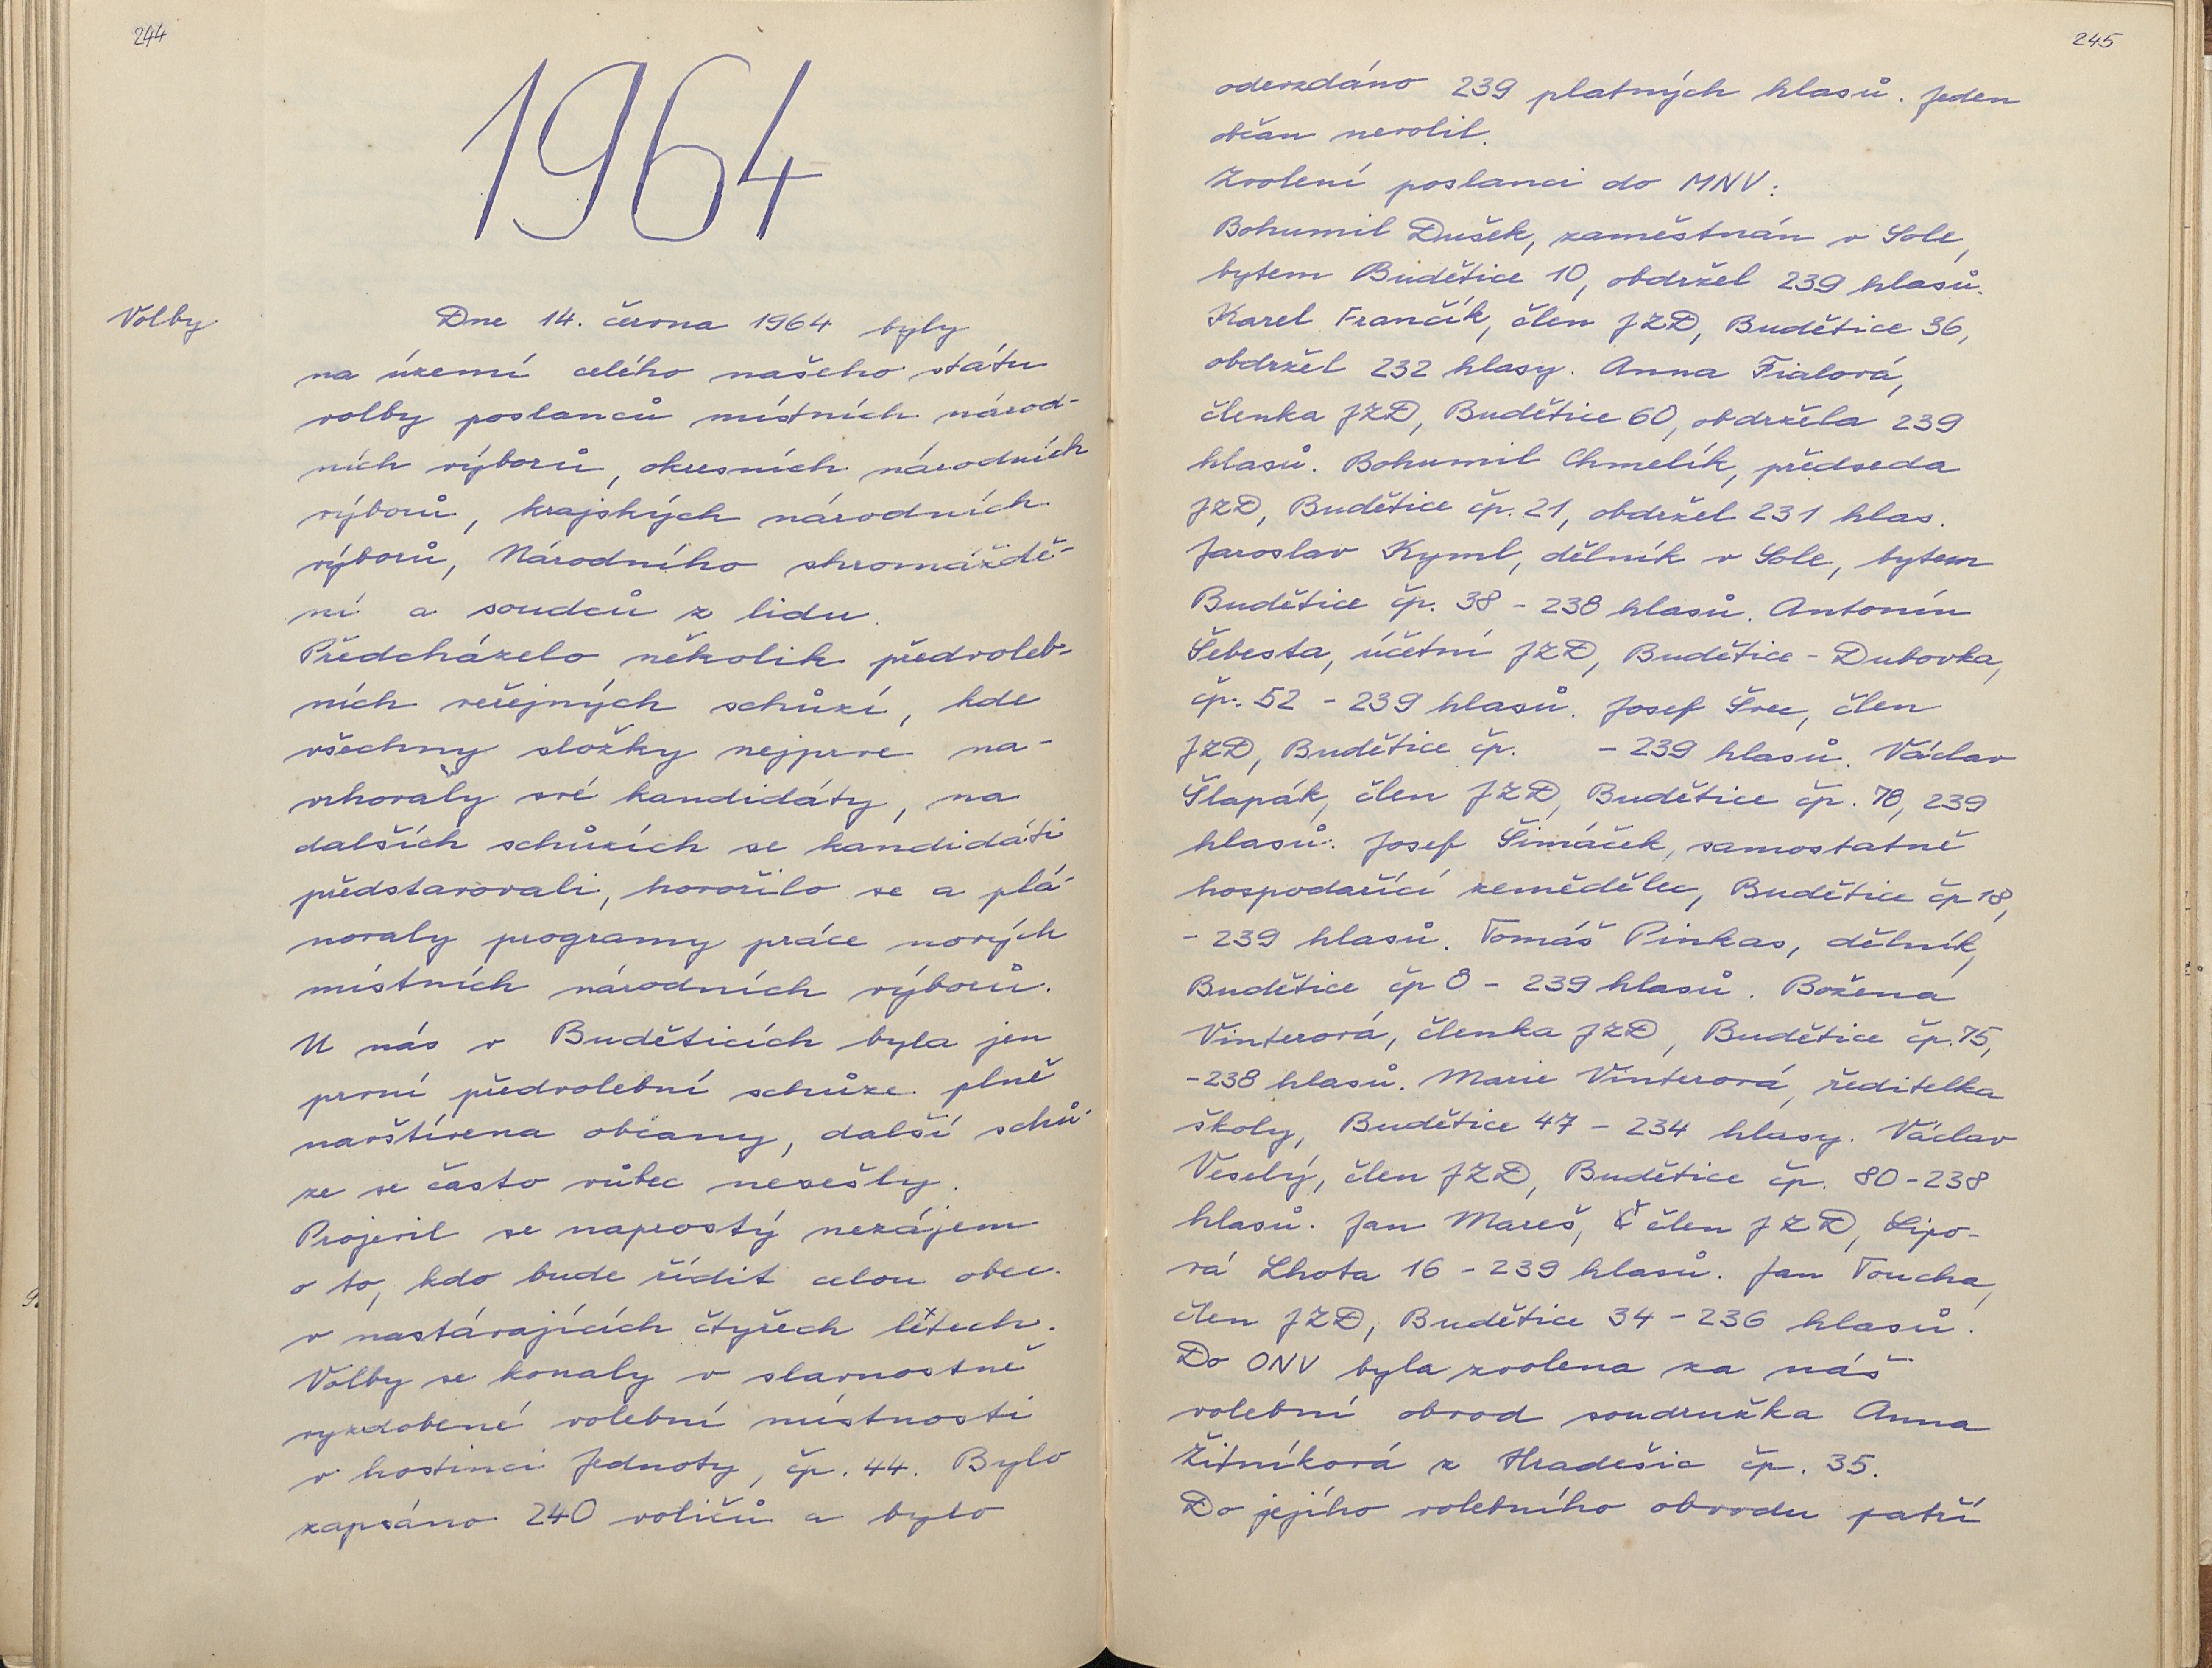 244
1964
Volby
Dne 14. června 1964 byly
na území celého našeho státu
volby poslanců místních národ-
ních výborů, okresních národních
výborů, krajských národních
výborů, Národního shromáždě-
ní a soudců z lidu.
Předcházelo několik předvoleb-
ních veřejných schůzí, kde
všechny složky nejprve na-
vrhovaly své kandidáty, na
dalších schůzích se kandidáti
představovali, hovořilo se a plá-
novaly programy práce nových
místních národních výborů.
U nás v Buděticích byla jen
první předvolební schůze plně
navštívena občany, další schů-
ze se často vůbec nesešly.
Projevil se naprostý nezájem
o to, kdo bude řídit celou obec
v nastávajících čtyřech létech.
Volby se konaly v slavnostně
vyzdobené volební místnosti
v hostinci Jednoty, čp. 44. Bylo
zapsáno 240 voličů a bylo
245
odevzdáno 239 platných hlasů. Jeden
občan nevolil.
Zvolení poslanci do MNV:
Bohumil Dušek, zaměstnán v Sole,
bytem Budětice 10, obdržel 239 hlasů.
Karel Frančík, člen JZD, Budětice 36,
obdržel 232 hlasy. Anna Fialová,
členka JZD, Budětice 60, obdržela 239
hlasů. Bohumil Chmelík, předseda
JZD, Budětice čp. 21, obdržel 231 hlas.
Jaroslav Kyml, dělník v Sole, bytem
Budětice čp. 38 - 238 hlasů. Antonín
Šebesta, účetní JZD, Budětice - Dubovka,
čp. 52 - 239 hlasů. Josef Švec, člen
JZD, Budětice čp. - 239 hlasů. Václav
Šlapák, člen JZD, Budětice čp. 78, 239
hlasů. Josef Šimáček, samostatně
hospodařící zemědělec, Budětice čp 18,
- 239 hlasů. Tomáš Pinkas, dělník,
Budětice čp 8 - 239 hlasů. Božena
Vinterová, členka JZD, Budětice čp. 75,
- 238 hlasů. Marie Vinterová, ředitelka
školy, Budětice 47 - 234 hlasy. Václav
Veselý, člen JZD, Budětice čp. 80 - 238
hlasů. Jan Mareš, člen JZD, Lipo-
vá Lhota 16 - 239 hlasů. Jan Toucha,
člen JZD, Budětice 34 - 236 hlasů.
Do ONV byla zvolena za náš
volební obvod soudružka Anna
Žitníková z Hradešic čp. 35.
Do jejího volebního obvodu patří